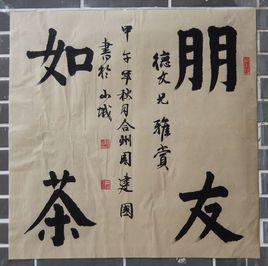 朋友
如茶
德文兄雅赏
甲午年秋月合州周建国
书於山城